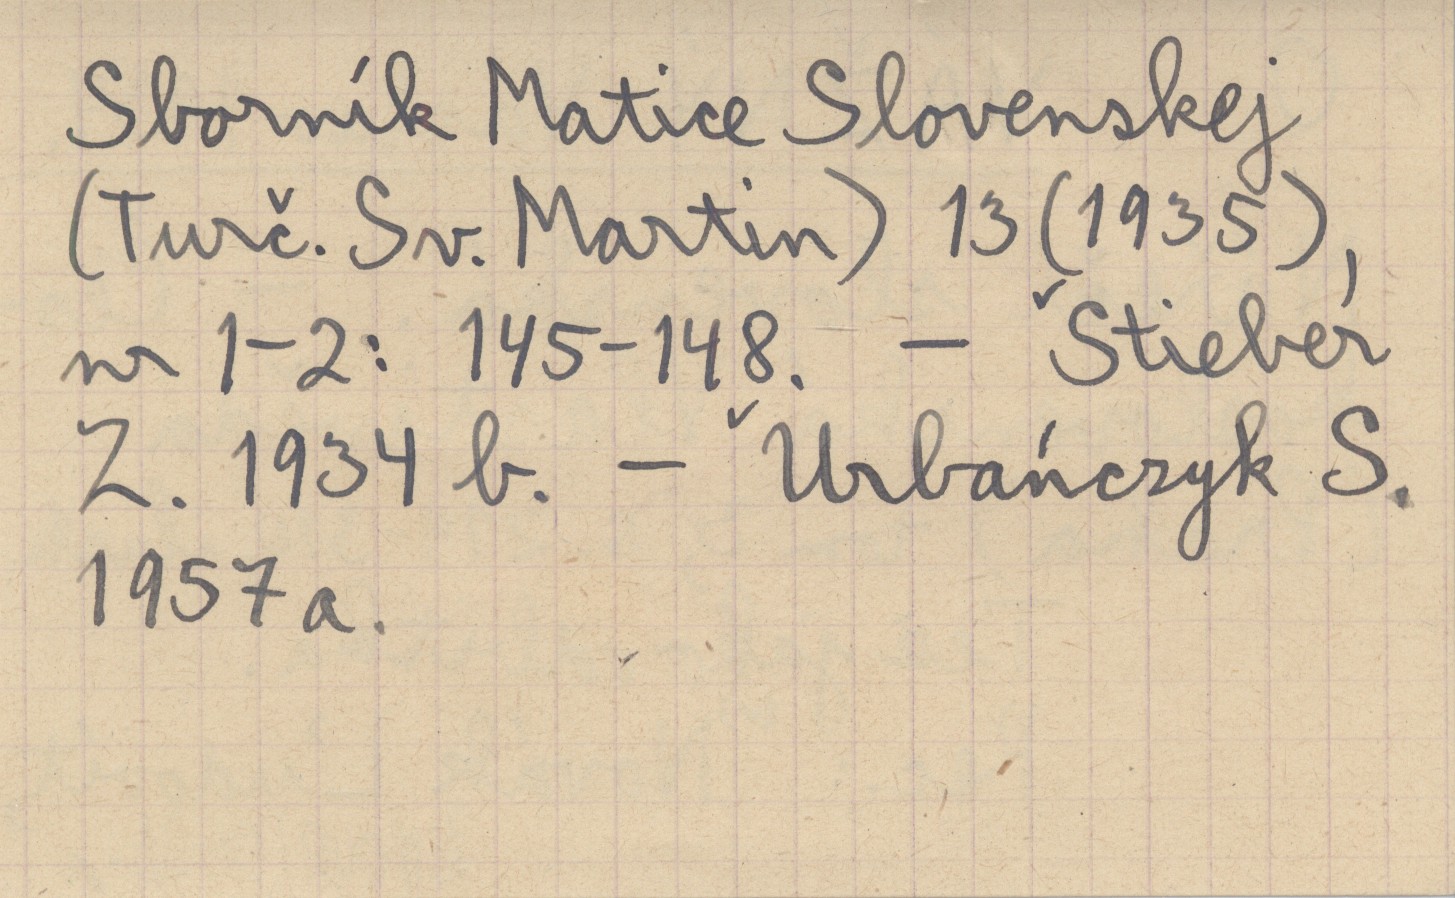 Sborník Matice Slovenskej
(Turč. Sv. Martin) 13 (1935),
nr 1-2: 145-148. — ✓Stieber
Z. 1934 b. — ✓Urbańczyk S.
1957 a.